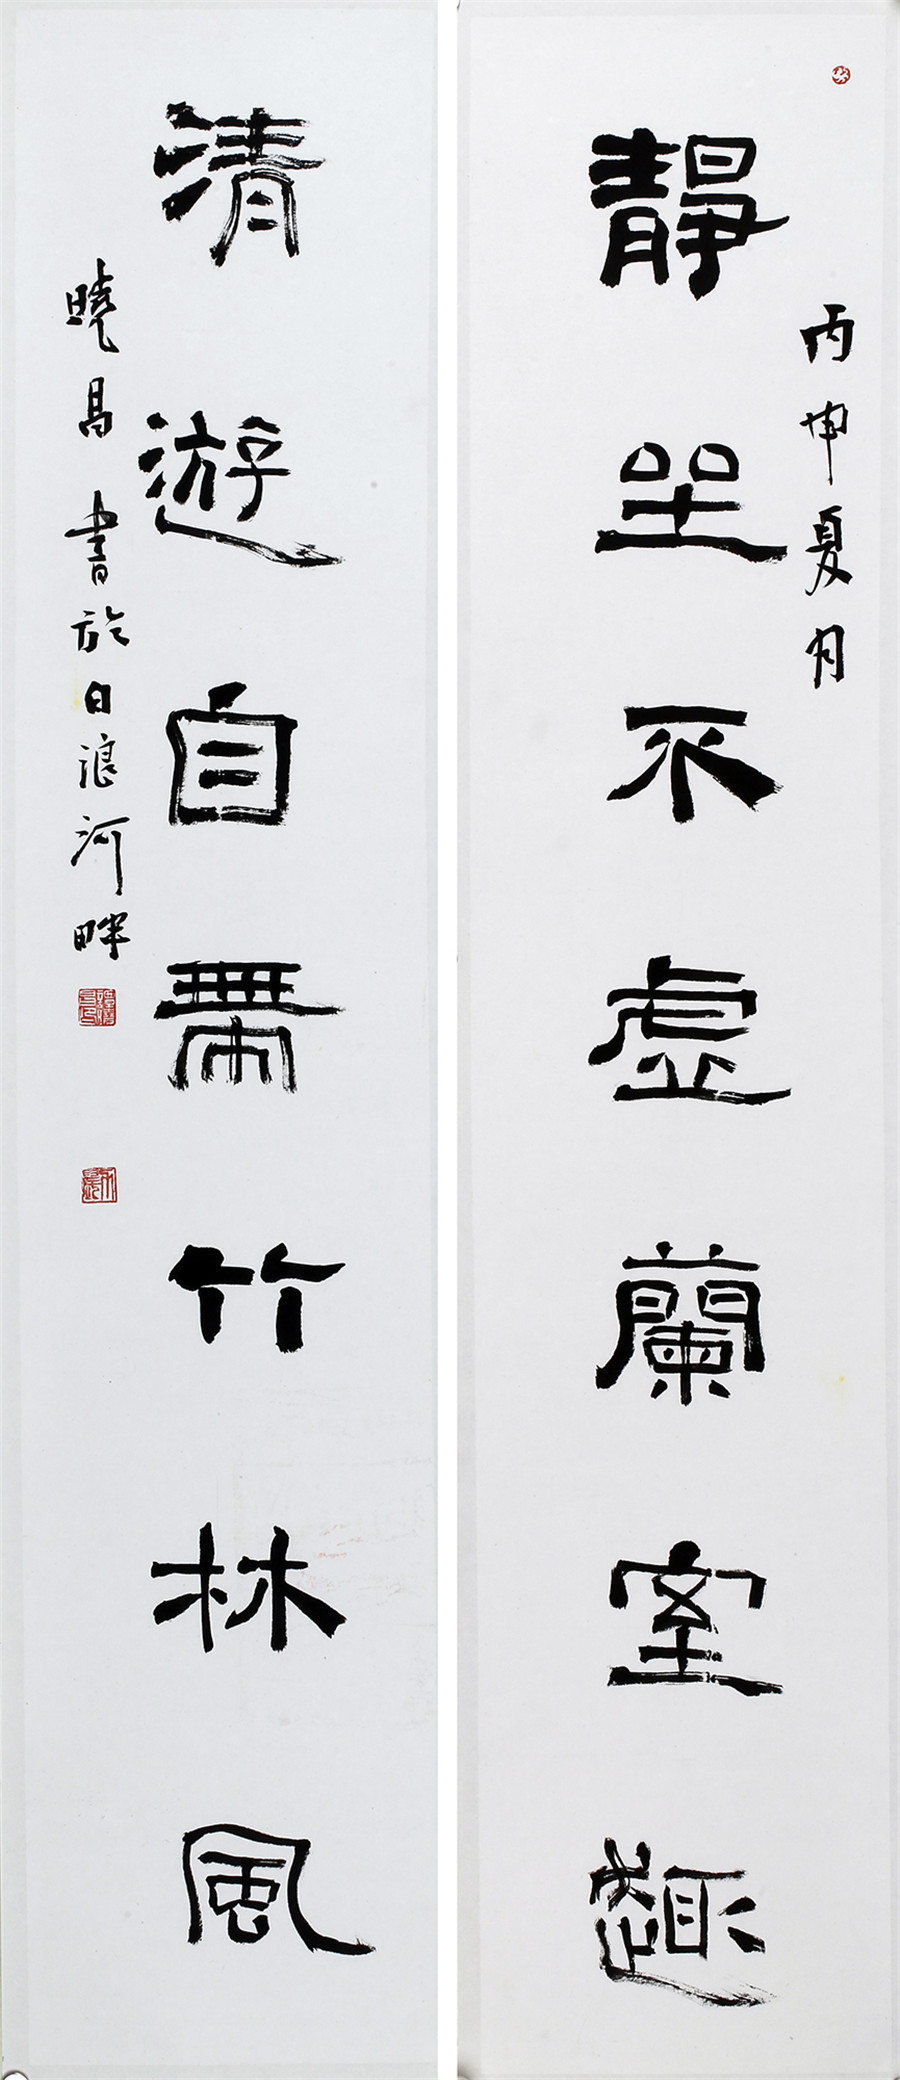 丙申夏月
靜坐不虛蘭室趣
清遊自帶竹林風
曉昌書於白浪河畔